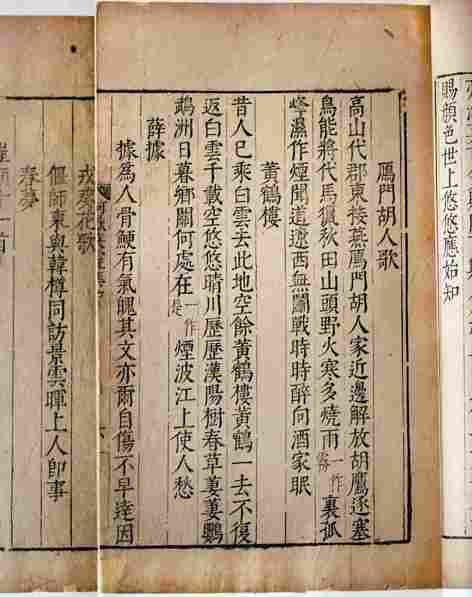 賜顏色世上悠悠應始知
鴈門胡人歌
高山代郡東接燕鴈門胡人家近邊解放胡鷹逐塞
鳥能將代馬獵秋田山頭野火寒多燒雨一作霧裏孤
峰濕作煙聞道遼西無鬬戰時時醉向酒家眠
黃鶴樓
昔人已乘白雲去此地空餘黃鶴樓黃鶴一去不復
返白雲千載空悠悠晴川歷歷漢陽樹春草萋萋鸚
鵡洲日暮鄉關何處在一作是煙波江上使人愁
薛據
據爲人骨鯁有氣魄其文亦爾自傷不早達因
戎葵花歌
偃師東與韓樽同訪景雲暉上人即事
春夢
十一首